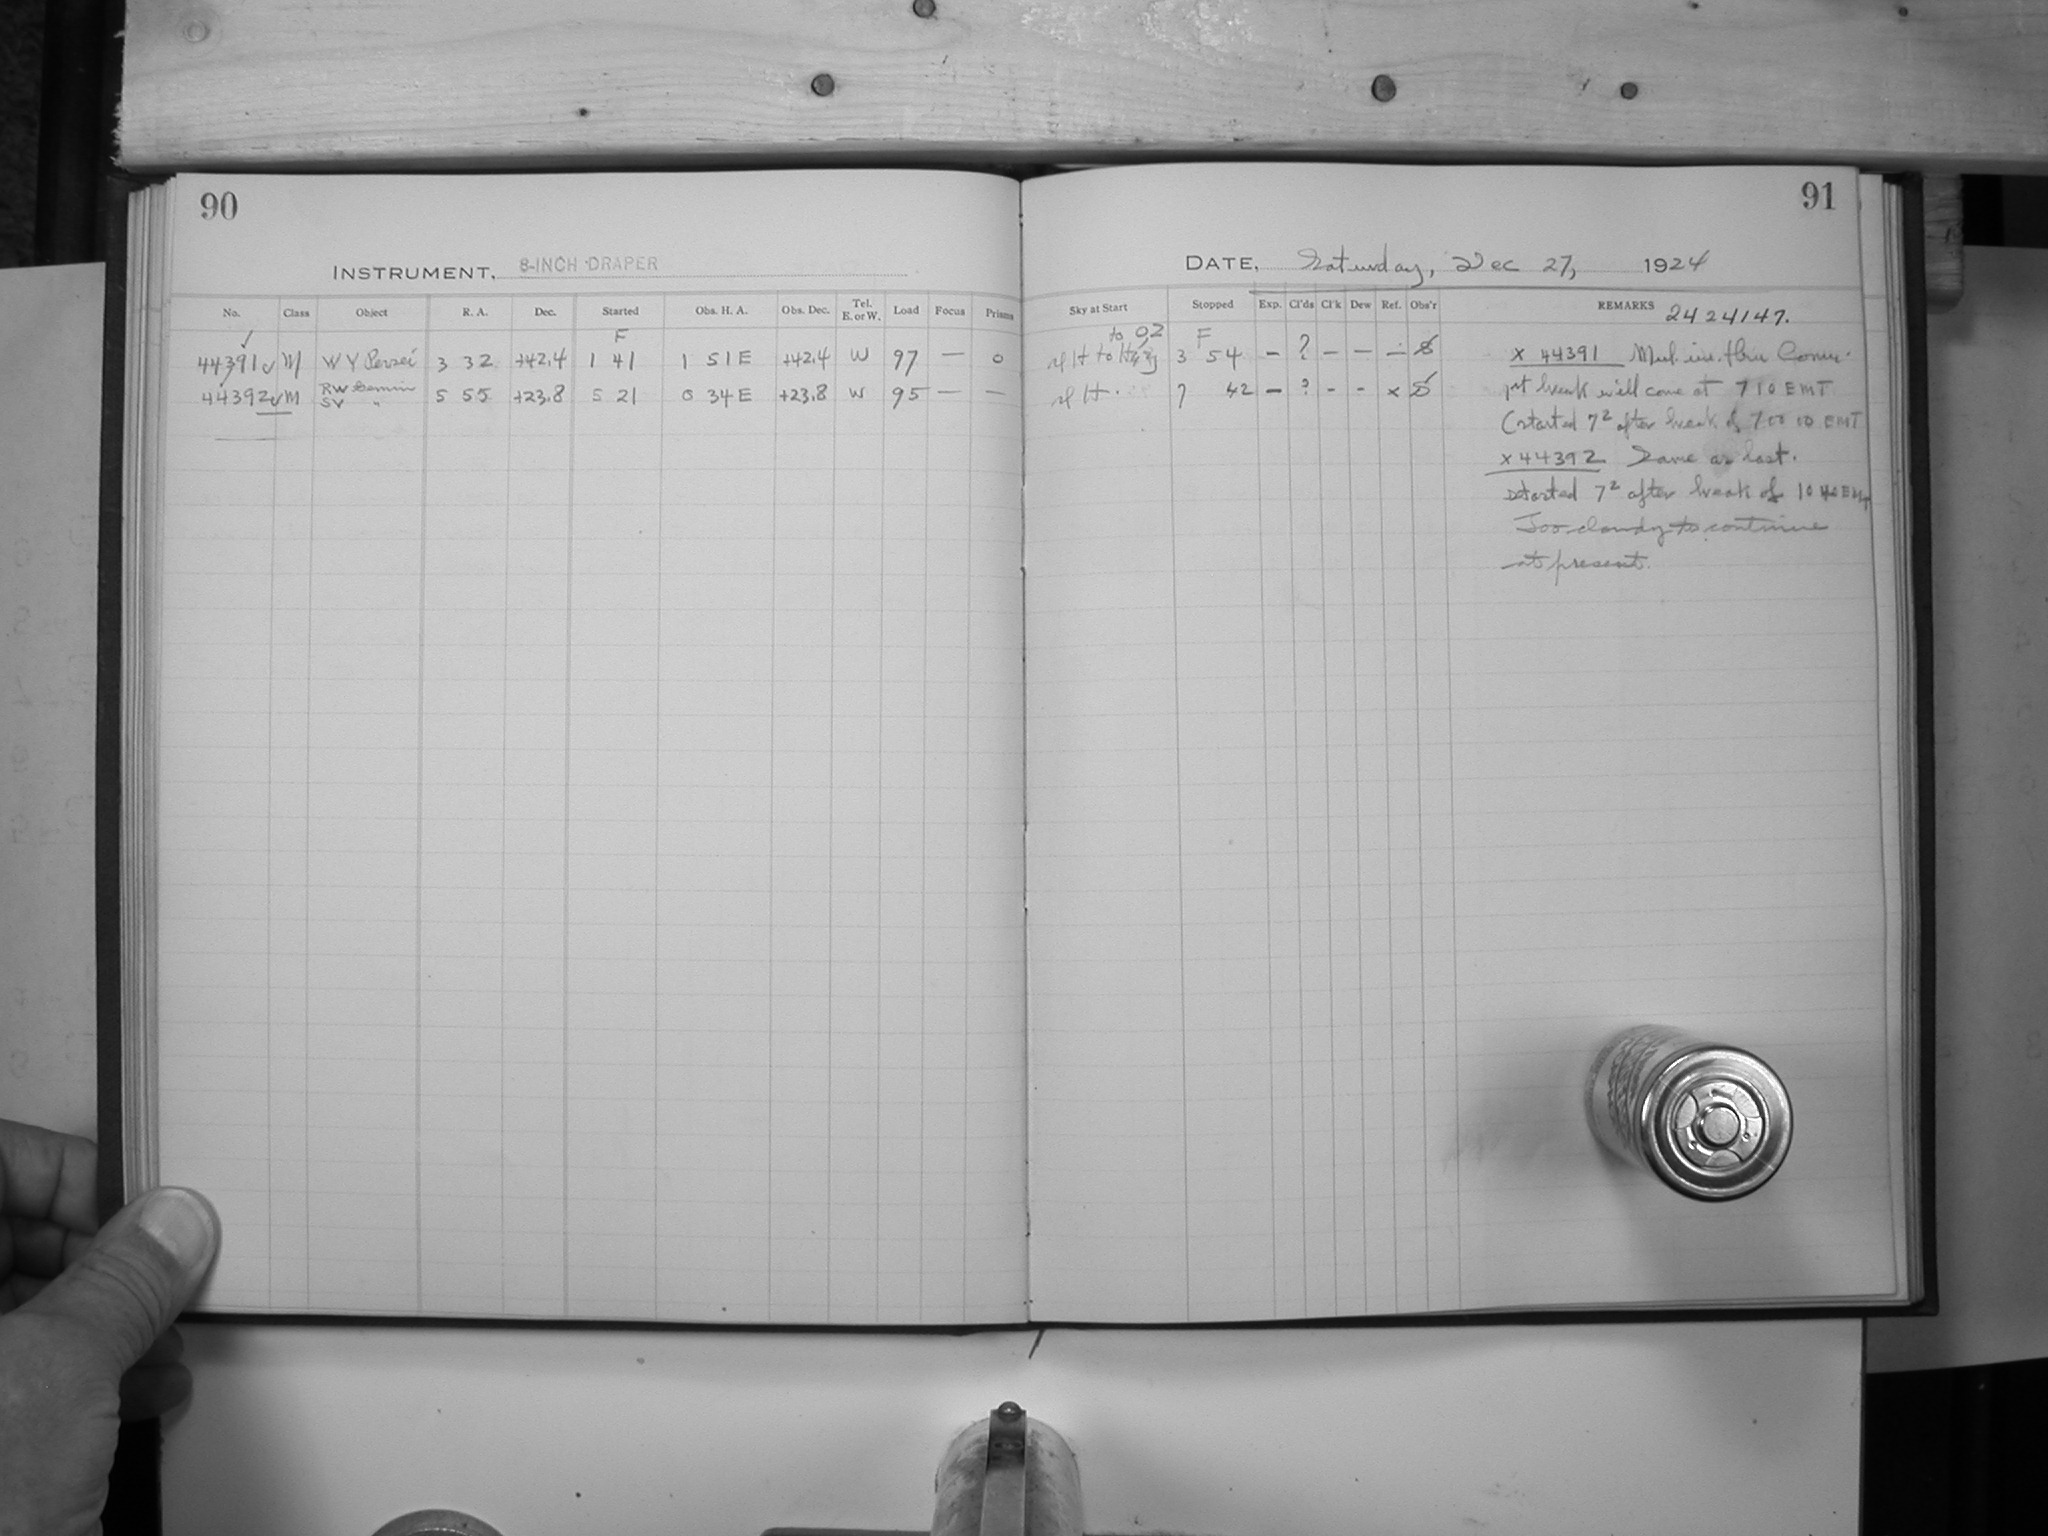 90
INSTRUMENT, 8-INCH DRAPER
No. Class Object R. A. Dec. Started Obs. H. A. Obs. Dec. Tel. E. or W. Load Focus Prisms
F
44391 M WY Persei 3 32 +42.4 1 41 1 51 E +42.4 W 97 — 0
44392 M RW Gemin 5 55 +23.8 5 21 0 34 E +23.8 W 95 — —
SV "
91
DATE, Saturday, Dec 27, 1924
Sky at Start Stopped Exp. Cl'ds Cl'k Dew Ref. Obs'r REMARKS
2424147.
to 02 F
sl H to Hazy 3 54 – ? – – –
sl H. 7 42 – ? - - x
x 44391
1st break will come at 7 10 EMT
(started 7² after break of 7 00 00 EMT
x 44392 Same as last.
Started 7² after break of 10 40 EMT
Too cloudy to continue
at present.